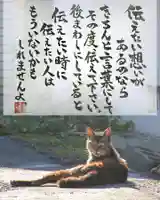 伝えたい想いが
あるのなら
きちんと言葉にして
その度、伝えて下さい
後まわしにしていると
伝えたい時に
伝えたい人は
もういないかも
しれませんよ